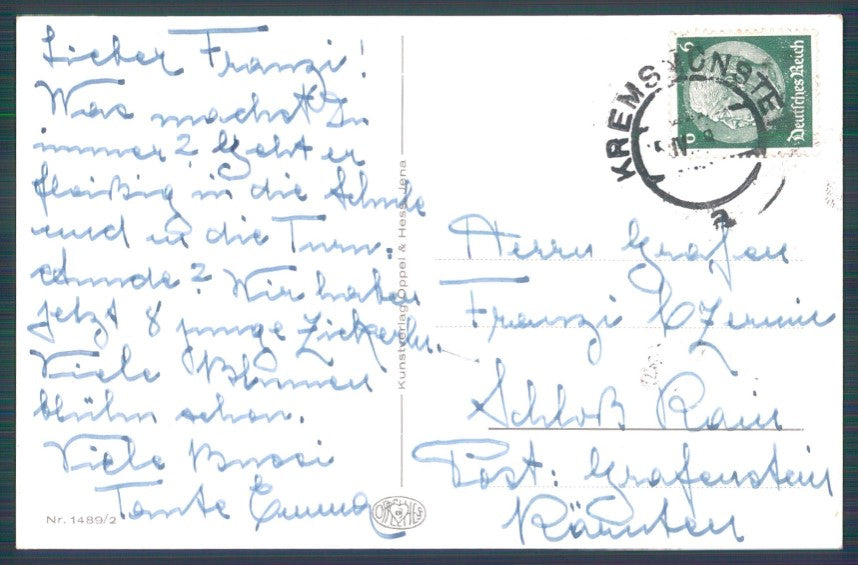 Lieber Franzi!
Was machst Du
immer? Geht er
fleißig in die Schule
und in die Turn-
stunde? Wir haben
jetzt 8 junge Zickerln.
Viele Blumen
blühn schon.
Viele Bussi
Tante Emma
Nr. 1489/2
Kunstverlag Oppel & Hess, Jena
KREMSMÜNSTER
a
6 6
Deutsches Reich
Herrn Grafen
Franzi Czernin
Schloß Rain
Post: Grafenstein
Kärnten